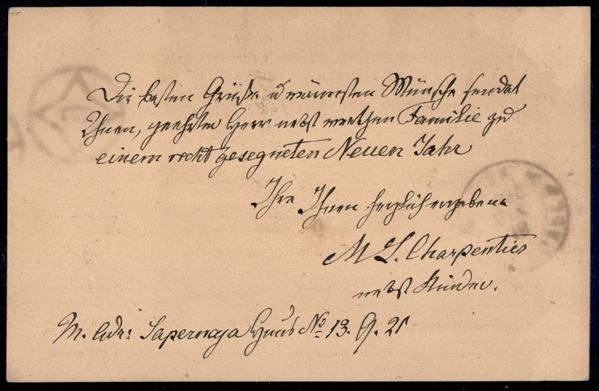 Die besten Grüße u wärmsten Wünsche sendet
Ihnen, geehrter Herr nebst werthen Familie zu
einem recht gesegneten Neuen Jahr
Ihre Ihnen herzlich ergebene
M L. Charpentier
nebst Kinder.
M. Adr: Sapernaja Haus No 13. Q. 21